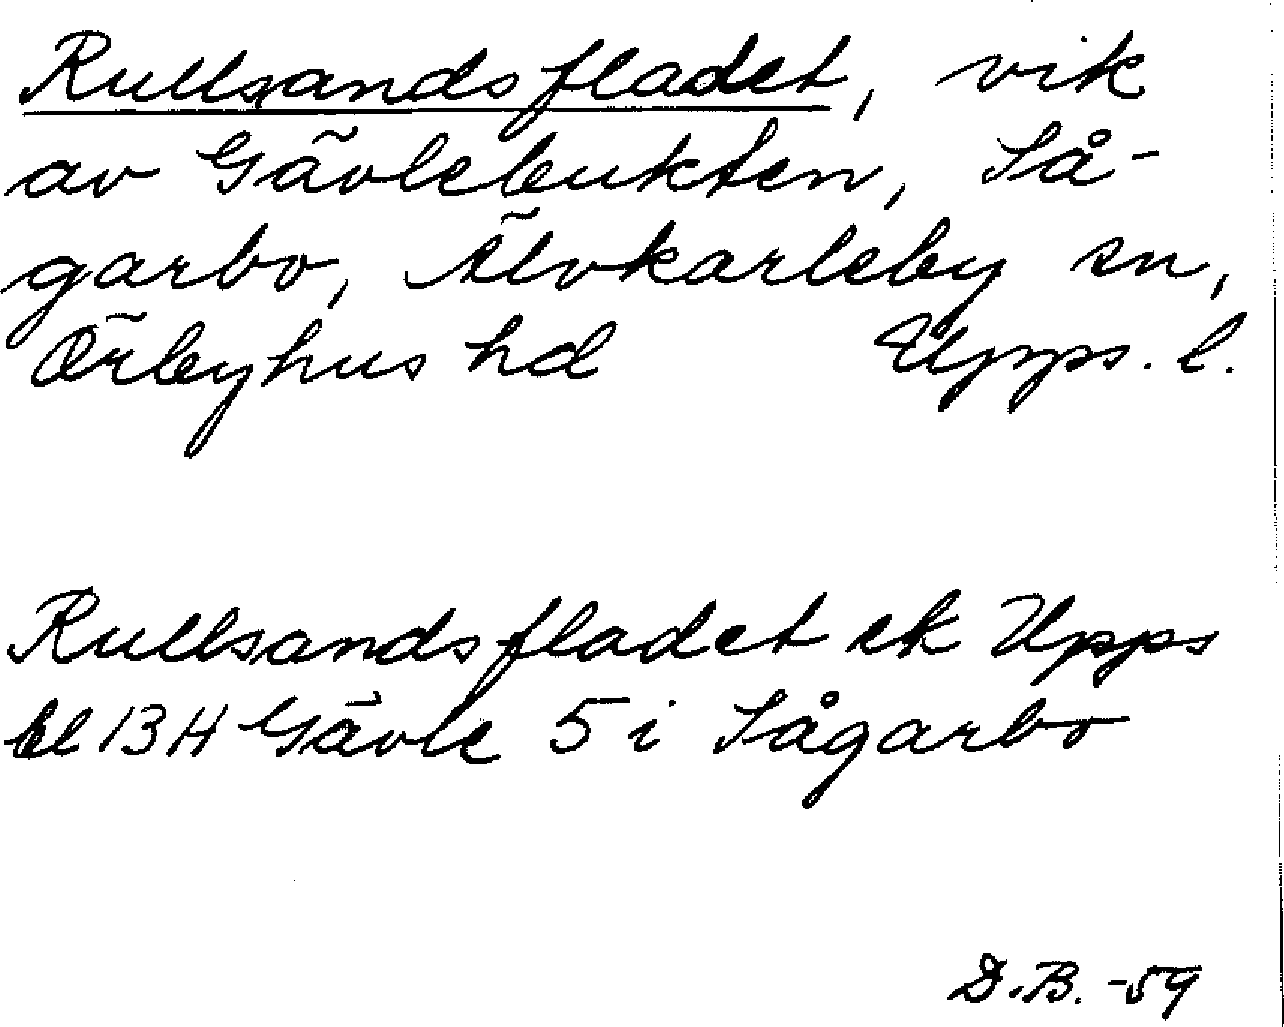 Rullsandsfladet, vik
av Gävlebukten, Så-
garbo, Älvkarleby sn,
Örbyhus hd Upps. l.
Rullsandsfladet ek Upps
bl 13 H Gävle 5 i Sågarbo
D.B. -59